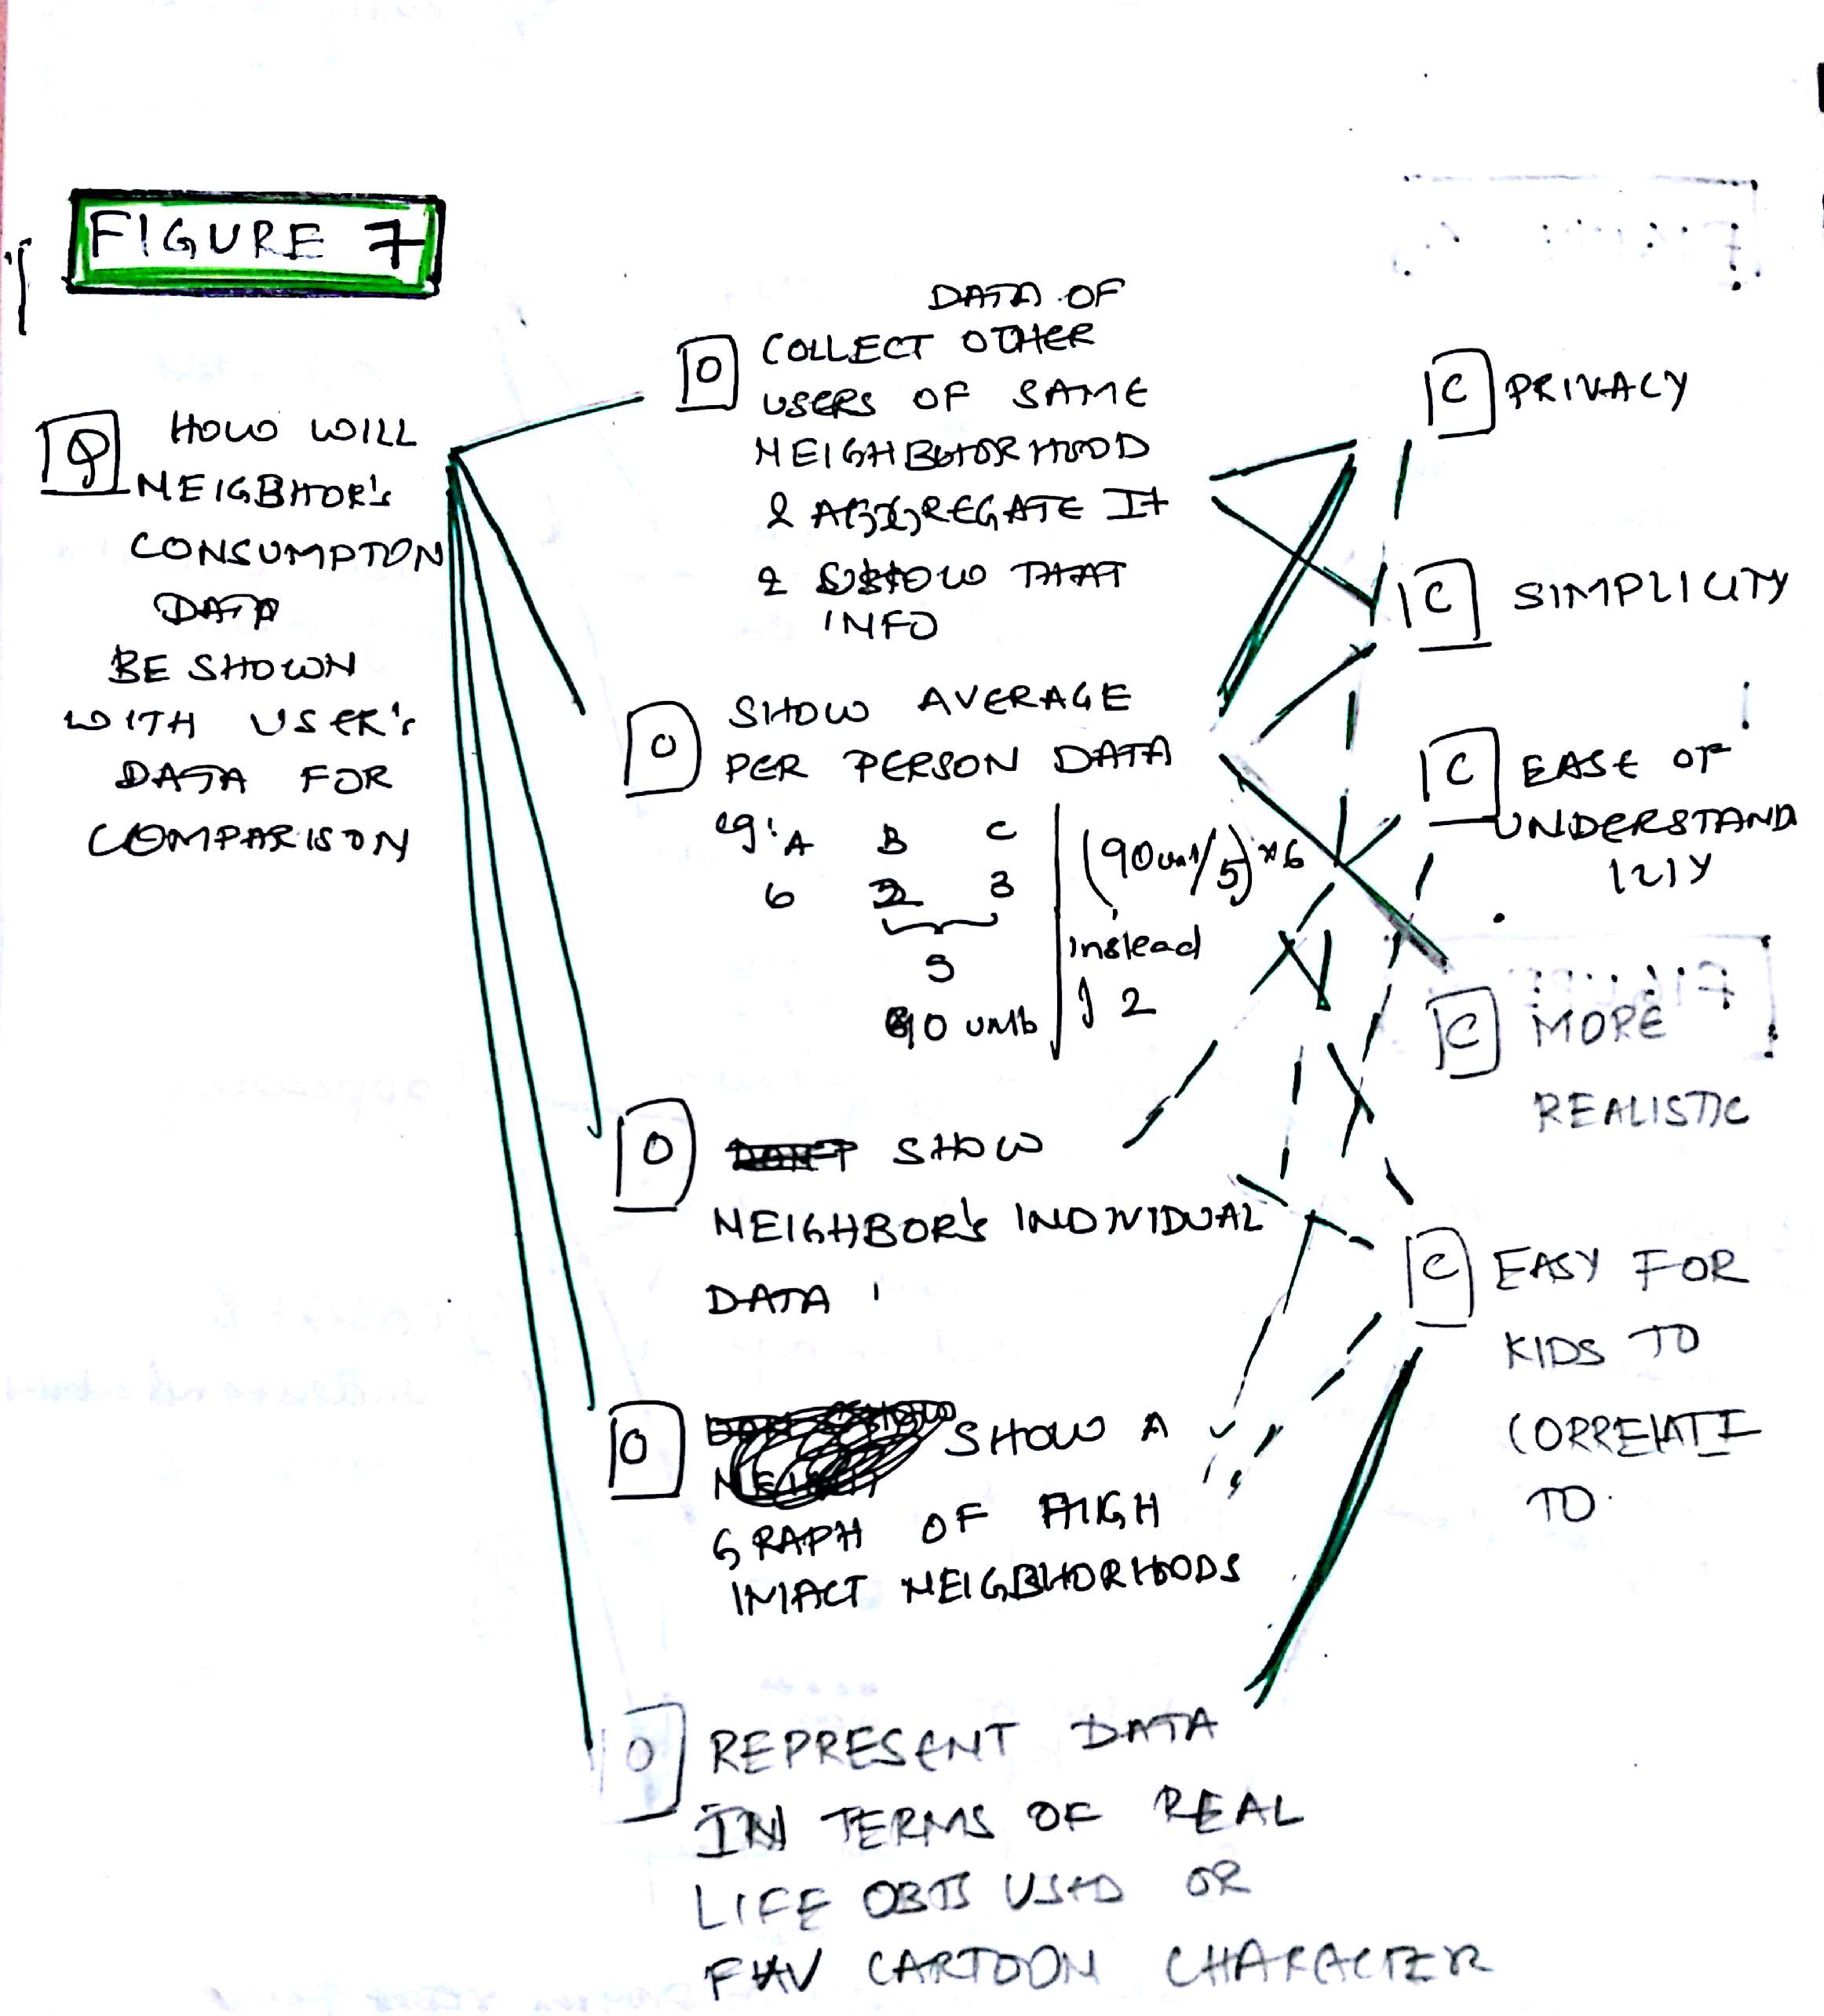 FIGURE 7
Q HOW WILL
NEIGBHOR's
CONSUMPTON
DATA
BE SHOWN
WITH USER's
DATA FOR
COMPARISON
DATA OF
O COLLECT OTHER
USERS OF SAME
NEIGHBHORHOOD
& AGGREGATE It
& SHOW THAT
INFO
O SHOW AVERAGE
PER PERSON DATA
eg: A B C
6 2 3
5
90 units
(90 unit/5) x 6
instead
of 2
O SHOW
NEIGHBOR's INDIVIDUAL
DATA
O SHOW A
GRAPH OF HIGH
IMACT NEIGBHORHOODS
O REPRESENT DATA
IN TERMS OF REAL
LIFE OBTS USED OR
FAV CARTOON CHARACTER
C PRIVACY
C SIMPLICITY
C EASE OF
UNDERSTAND
C MORE
REALISTIC
C EASY FOR
KIDS TO
CORRELATE
TO.